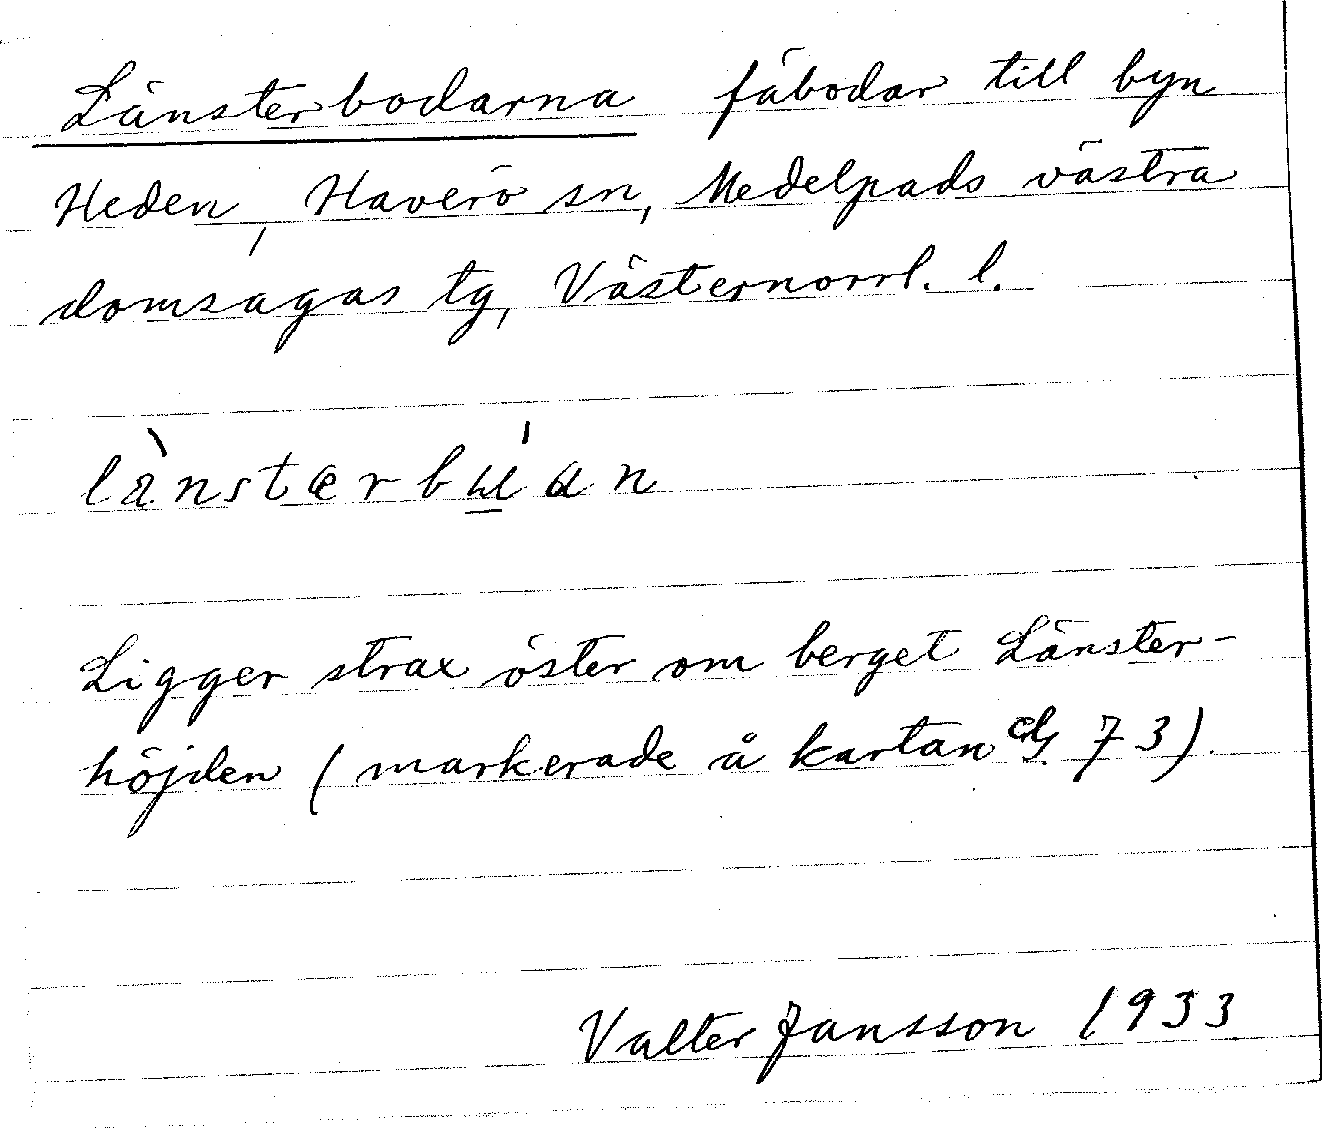 Länsterbodarna fäbodar till byn
Heden, Haverö sn, Medelpads västra
domsagas tg, Västernorrl. l.
lä̀nstærbú̲an
Ligger strax öster om berget Länster-
höjden (markerade å kartan 73).
Valter Jansson 1933